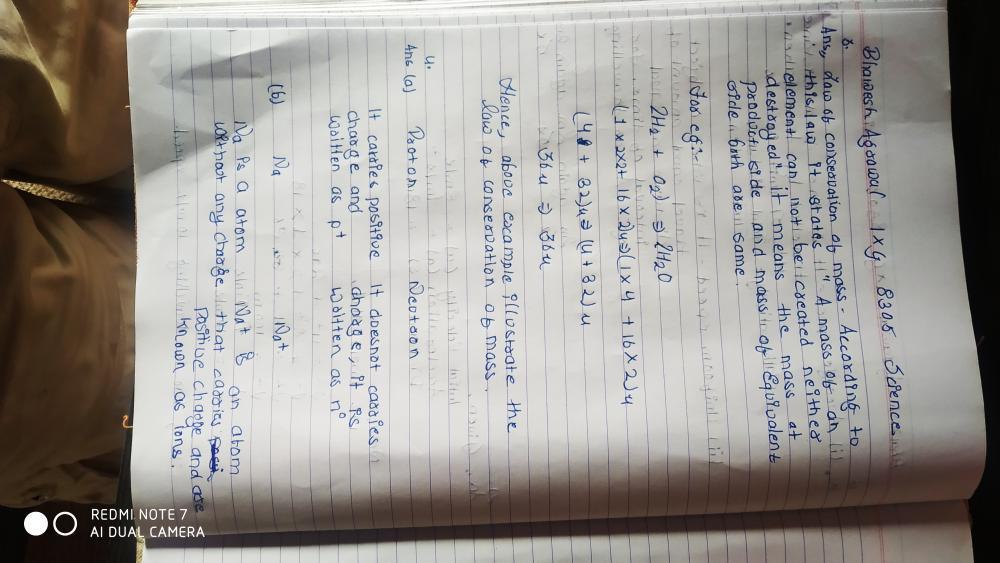 Bhawesh Agrawal IXG 8305 Science
3.
Ans,, Law of conservation of mass - According to
this law it states " A mass of an
element can not be created neither
destroyed". it means the mass at
product side and mass of Equivalent
side both are same.
For eg:-
2H₂ + O₂ ⇒ 2H₂O
(1x2x2 + 16x2)u ⇒ (1x4 + 16x2)u
(4 + 32)u ⇒ (4+32)u
36u ⇒ 36u
Hence, above example illustrate the
law of conservation of mass.
4.
Ans (a) Proton Neutron
It carries positive It doesnot carries
charge and charge, it is
written as p⁺ written as n⁰
(b) Na Na⁺
Na is a atom Na⁺ is an atom
without any charge that carries
positive charge and are
known as ions.
REDMI NOTE 7
AI DUAL CAMERA